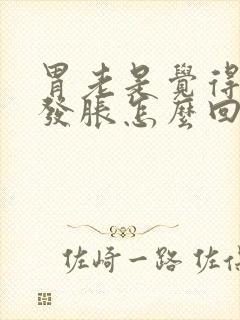 胃老是覺得
發脹怎麼回
佐崎一路 佐倍